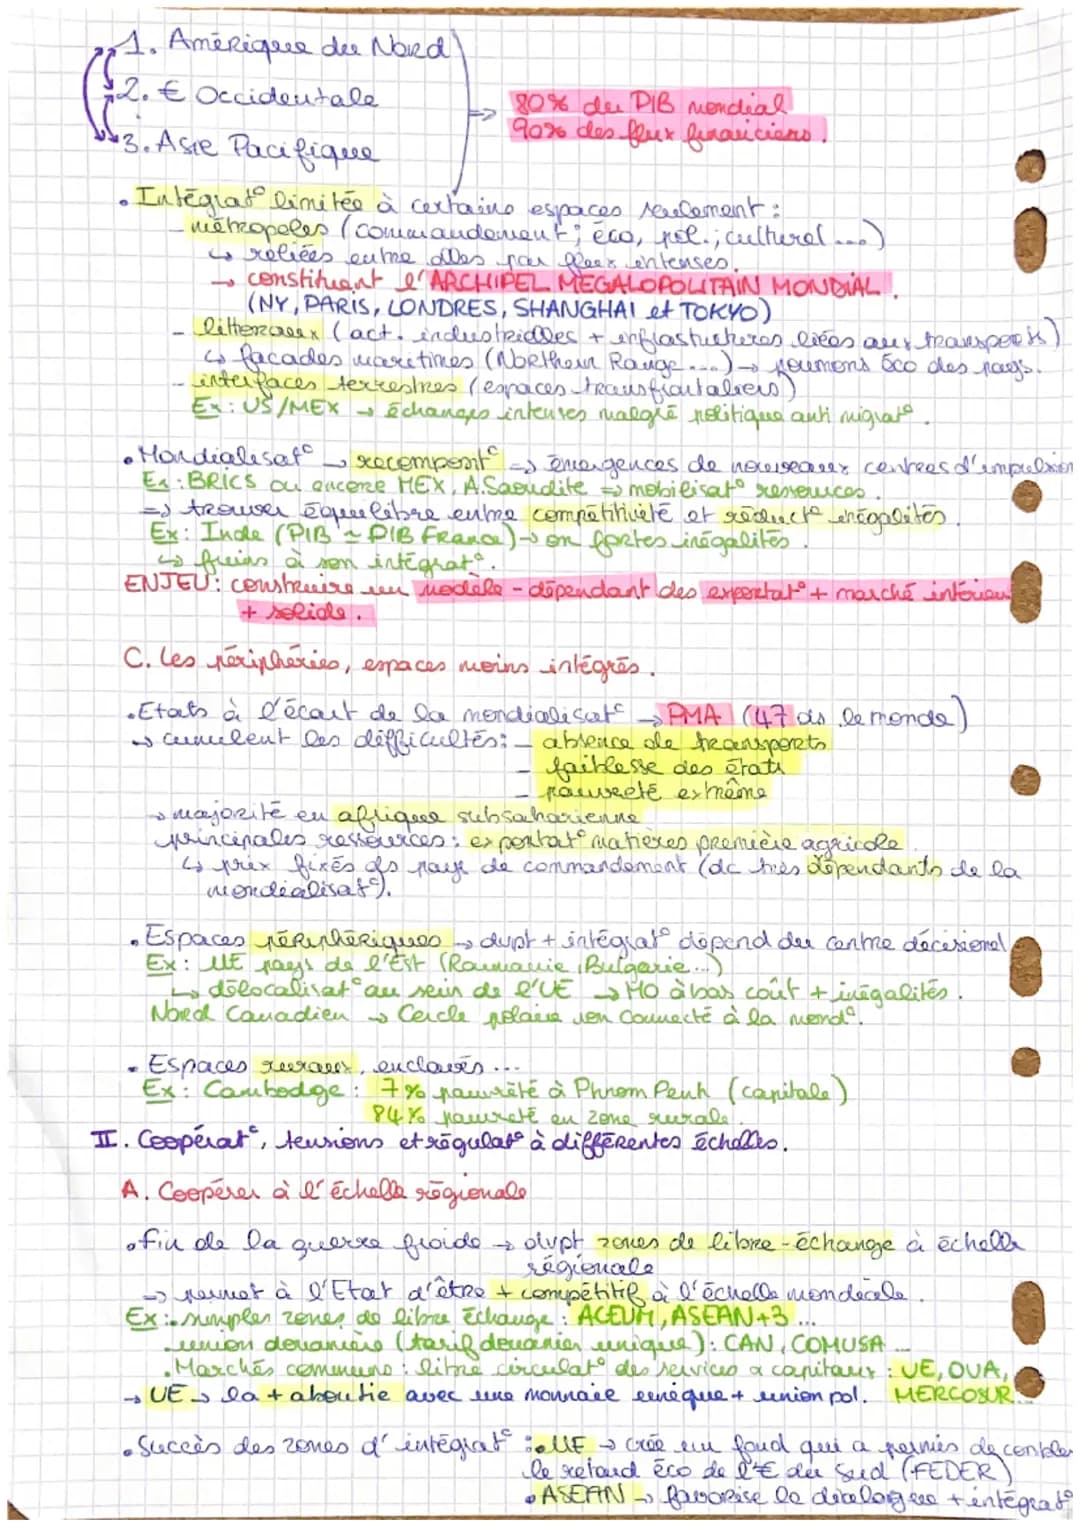 1. Amérique du Nord
2. € Occidentale
3. Asie Pacifique
=> 80% du PIB mondial
90% des flux financiers !
• Intégrat° limitée à certains espaces seulement :
- métropoles (commandement ; éco, pol. ; culturel ...)
↳ reliées entre elles par flux intenses.
→ constituent l'ARCHIPEL MEGALOPOLITAIN MONDIAL.
(NY, PARIS, LONDRES, SHANGHAI et TOKYO)
- littoraux (act. industrielles + infrastuctures liées aux transports)
↳ façades maritimes (Northern Range ...) → poumons éco des pays.
- interfaces terrestres (espaces transfrontaliers)
Ex : US/MEX → échanges intenses malgré politique anti migrat°.
• Mondialisat° → recomposit° => émergences de nouveaux centres d'impulsion
Ex : BRICS ou encore MEX, A.Saoudite => mobilisat° ressources.
=> trouver équilibre entre compétitivité et réduct° inégalités.
Ex : Inde (PIB ≃ PIB France) → on fortes inégalités.
↳ freins à son intégrat°.
ENJEU : construire un modèle - dépendant des exportat° + marché intérieur
+ solide.
C. Les périphéries, espaces moins intégrés.
• Etats à l'écart de la mondialisat° → PMA (47 ds le monde)
→ cumulent les difficultés : - absence de transports
- faiblesse des états
- pauvreté extrême
→ majorité en afrique subsaharienne
principales ressources : exportat° matières première agricole.
↳ prix fixés ds pays de commandement (dc très dépendants de la
mondialisat°).
• Espaces périphériques → dvpt + intégrat° dépend du centre décisionel
Ex : UE pays de l'Est (Roumanie, Bulgarie...)
↳ délocalisat° au sein de l'UE → MO à bas coût + inégalités.
Nord Canadien → Cercle polaire non connecté à la mond°.
• Espaces ruraux, enclavés ...
Ex : Cambodge : 7% pauvreté à Phnom Penh (capitale)
84% pauvreté en zone rurale.
II. Coopérat°, tensions et régulat° à différentes échelles.
A. Coopérer à l'échelle régionale
• fin de la guerre froide → dvpt zones de libre-échange à échelle
régionale
→ permet à l'Etat d'être + compétitif à l'échelle mondiale.
Ex : • simples zones de libre échange : ACEUM, ASEAN+3 ...
• union douanière (tarif douanier unique) : CAN, COMUSA ...
• Marchés communs : libre circulat° des services & capitaux : UE, OUA,
→ UE → la + aboutie avec une monnaie unique + union pol. MERCOSUR...
• Succès des zones d'intégrat° : • UE → crée un fond qui a permis de combler
le retard éco de l'€ du Sud (FEDER)
• ASEAN → favorise le dialogue + intégrat°